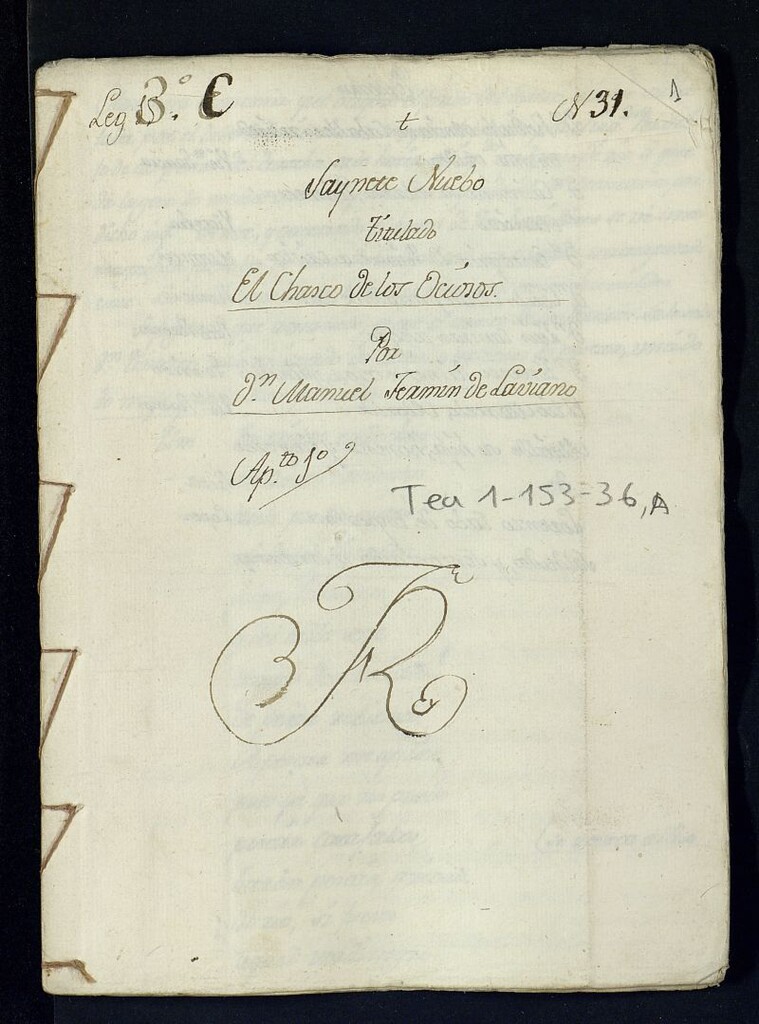 Leg 3.º C
N 31.
1
t
Saynete Nuebo
titulado
El Chasco de los Ociosos.
Por
Dn. Manuel Fermin de Laviano
Ap.to 1º
Tea 1-153-36, A